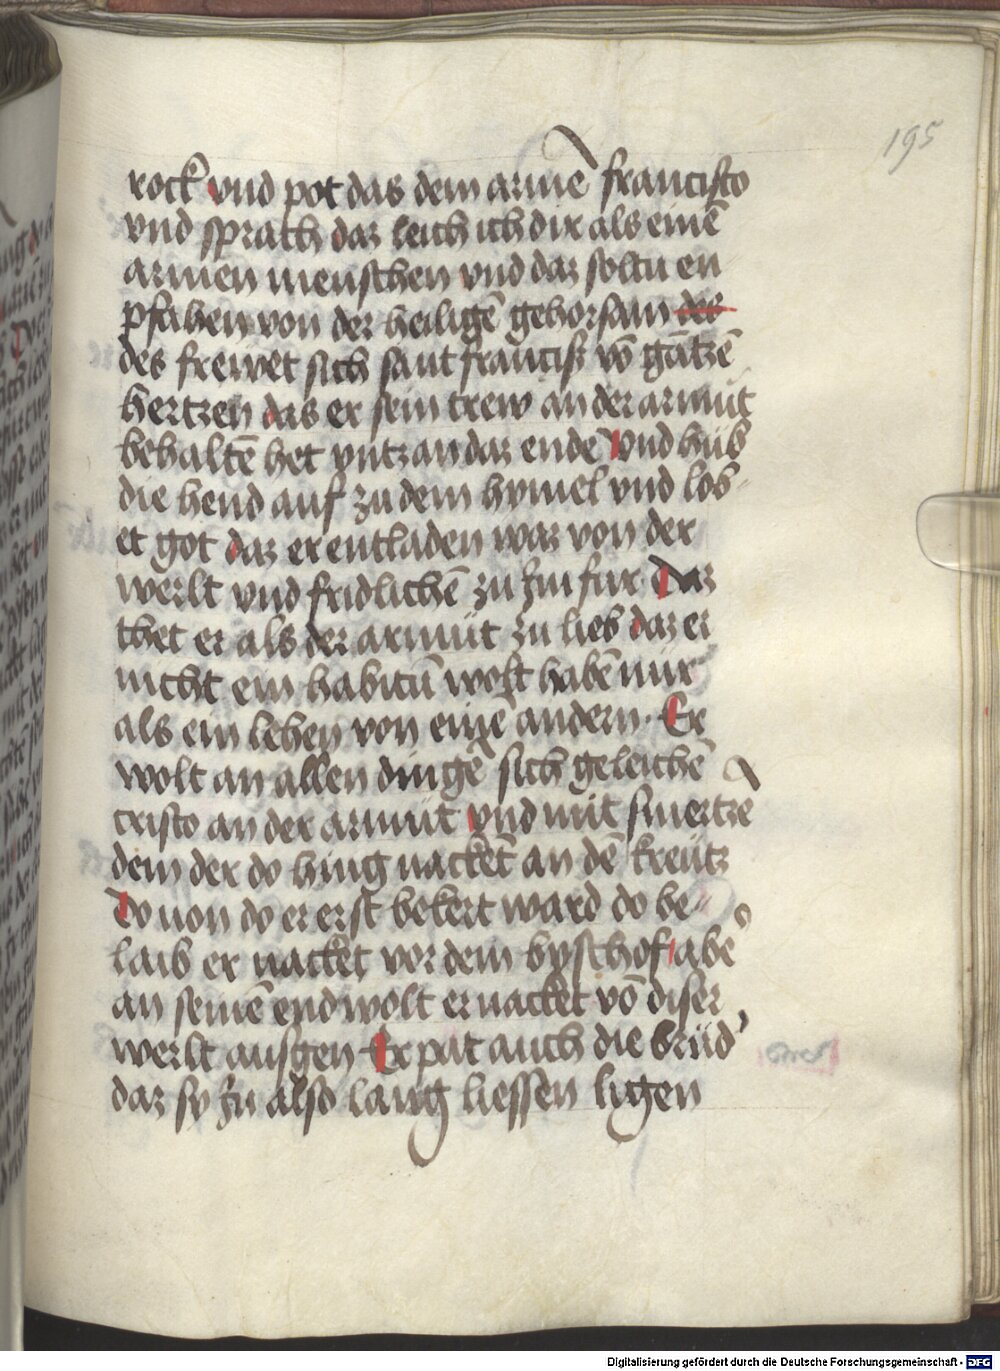 195
rock vnd pot das dem arme͂ francisco
vnd sprach daz leich ich dir als eine͂
armen menschen vnd daz soltu en
pfahen von der heilige͂ gehorsam der
des frewet sich sant francisz vo͂ gantze͂
hertzen das er sein trew an der armut
behalte͂ het vntz an daz ende vnd hub
die hend auf zu dem hymel vnd lob
et got daz er entladen waz von der
werlt vnd fridliche͂ zu im fur Daz
thet er als der armut zu lieb daz er
nicht ein habitu͂ wolt habe͂ nur
als ein lehen von eine͂ andern Er
wolt an allen dinge͂ sich geleiche͂
cristo an der armut vnd mit smertze͂
dem der do hing nacket an de͂ kreutz
Do uon do er erst bekert ward do be
laib er nacket vor dem byschof abe͂
an seine͂ end wolt er nacket vo͂ diser
werlt ausgen Er pat auch die brüd'
daz sy in also lang liessen ligen
Digitalisierung gefördert durch die Deutsche Forschungsgemeinschaft - DFG